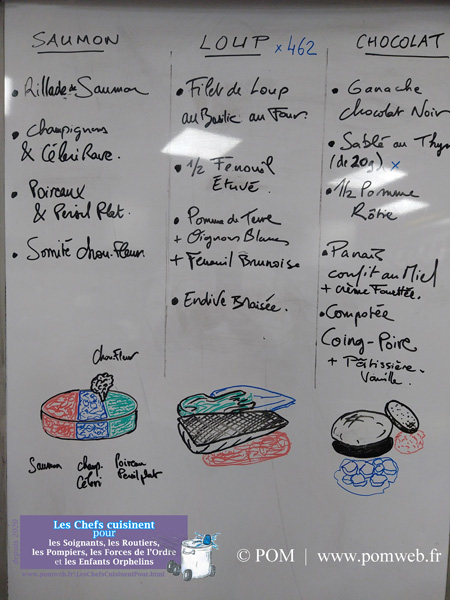 SAUMON
• Rillade de Saumon
• Champignons
& Céleri Rave.
• Poireaux
& Persil Plat.
• Somité Chou-Fleur
Chou Fleur
Saumon
champ.
Céleri
Poireau
Persil plat
LOUP × 462
• Filet de Loup
au Basilic au Four.
• 1/2 Fenouil
Étuvé.
• Pomme de Terre
+ Oignons Blancs
+ Fenouil Brunoise
• Endive Braisée.
CHOCOLAT
• Ganache
chocolat Noir
• Sablé au Thym
(de 20g) ×
• 1/2 Pomme
Rôtie
• Panais
confit au Miel
+ crème Fouettée.
• Compotée
Coing-Poire
+ Pâtissière
Vanille.
depuis 2020
Les Chefs cuisinent
pour
les Soignants, les Routiers,
les Pompiers, les Forces de l'Ordre
et les Enfants Orphelins
www.pomweb.fr/LesChefsCuisinentPour.html
© POM | www.pomweb.fr